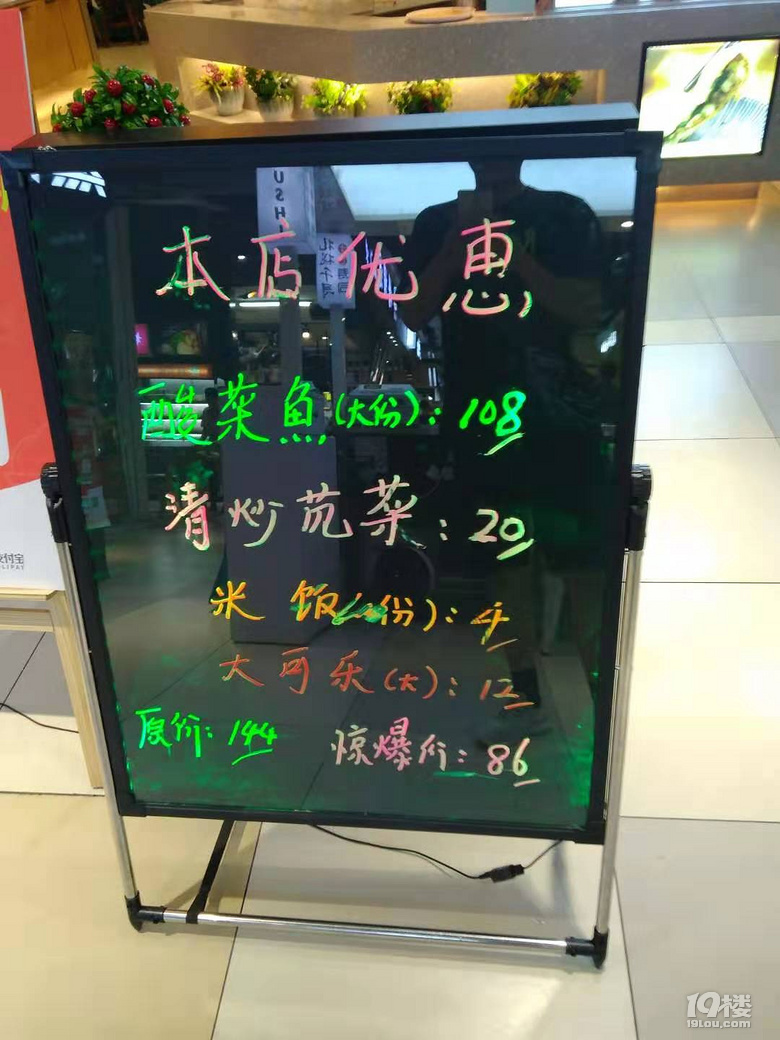 本店优惠
酸菜鱼(大份):108
清炒苋菜:20
米饭(份):4
大可乐(大):12
原价:144 惊爆价:86
USH
付宝
LIPAY
19楼
19lou.com